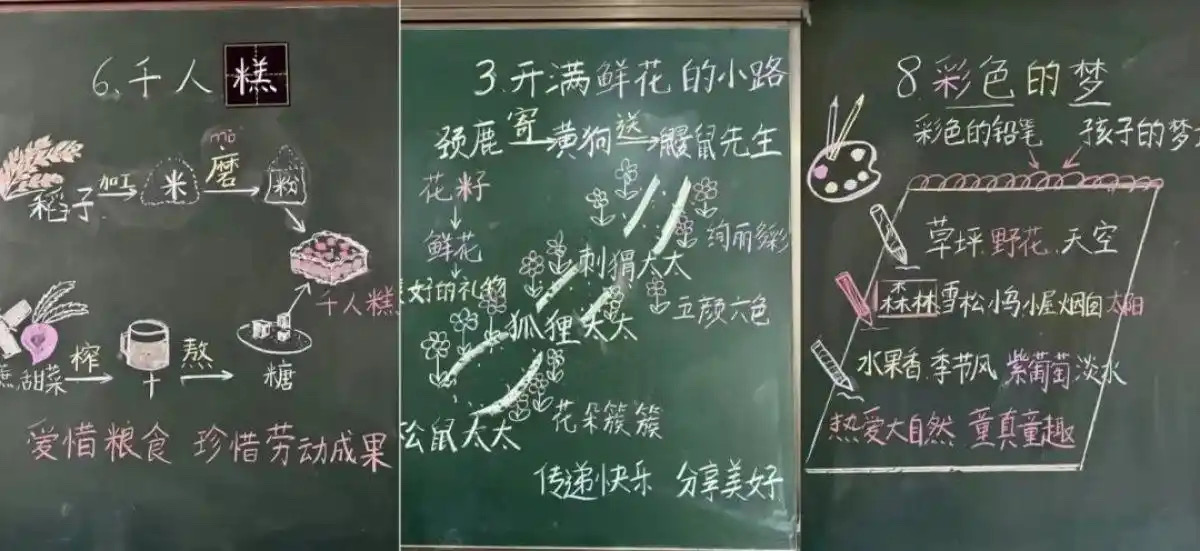 6.千人糕
mó
稻子 加工 米 磨 粉
千人糕
甜菜 榨 汁 熬 糖
爱惜粮食 珍惜劳动成果
3.开满鲜花的小路
颈鹿 寄 黄狗 送 鼹鼠先生
花籽
鲜花
绚丽多彩
刺猬太太
好的礼物
五颜六色
狐狸太太
松鼠太太
花朵簇簇
传递快乐 分享美好
8.彩色的梦
彩色的铅笔 孩子的梦
草坪 野花 天空
森林 雪松 小鸟 小屋 烟囱 太阳
水果香 季节风 紫葡萄 淡水
热爱大自然 童真童趣